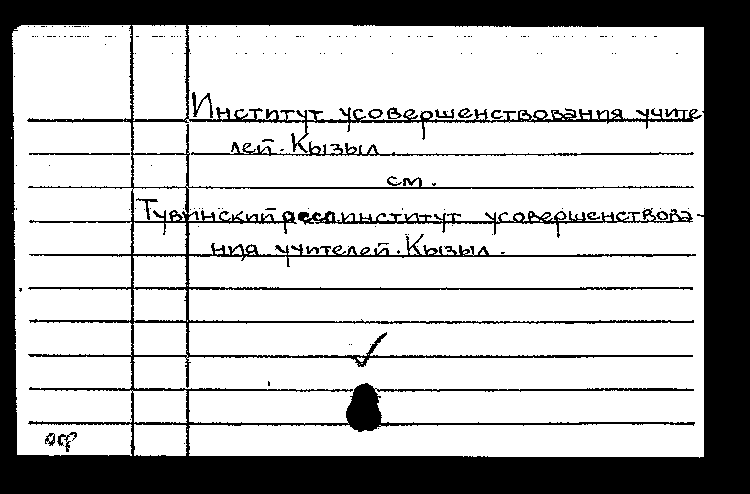 Институт усовершенствования учите-
лей. Кызыл.
см.
Тувинский респ.институт усовершенствова-
ния учителей. Кызыл.